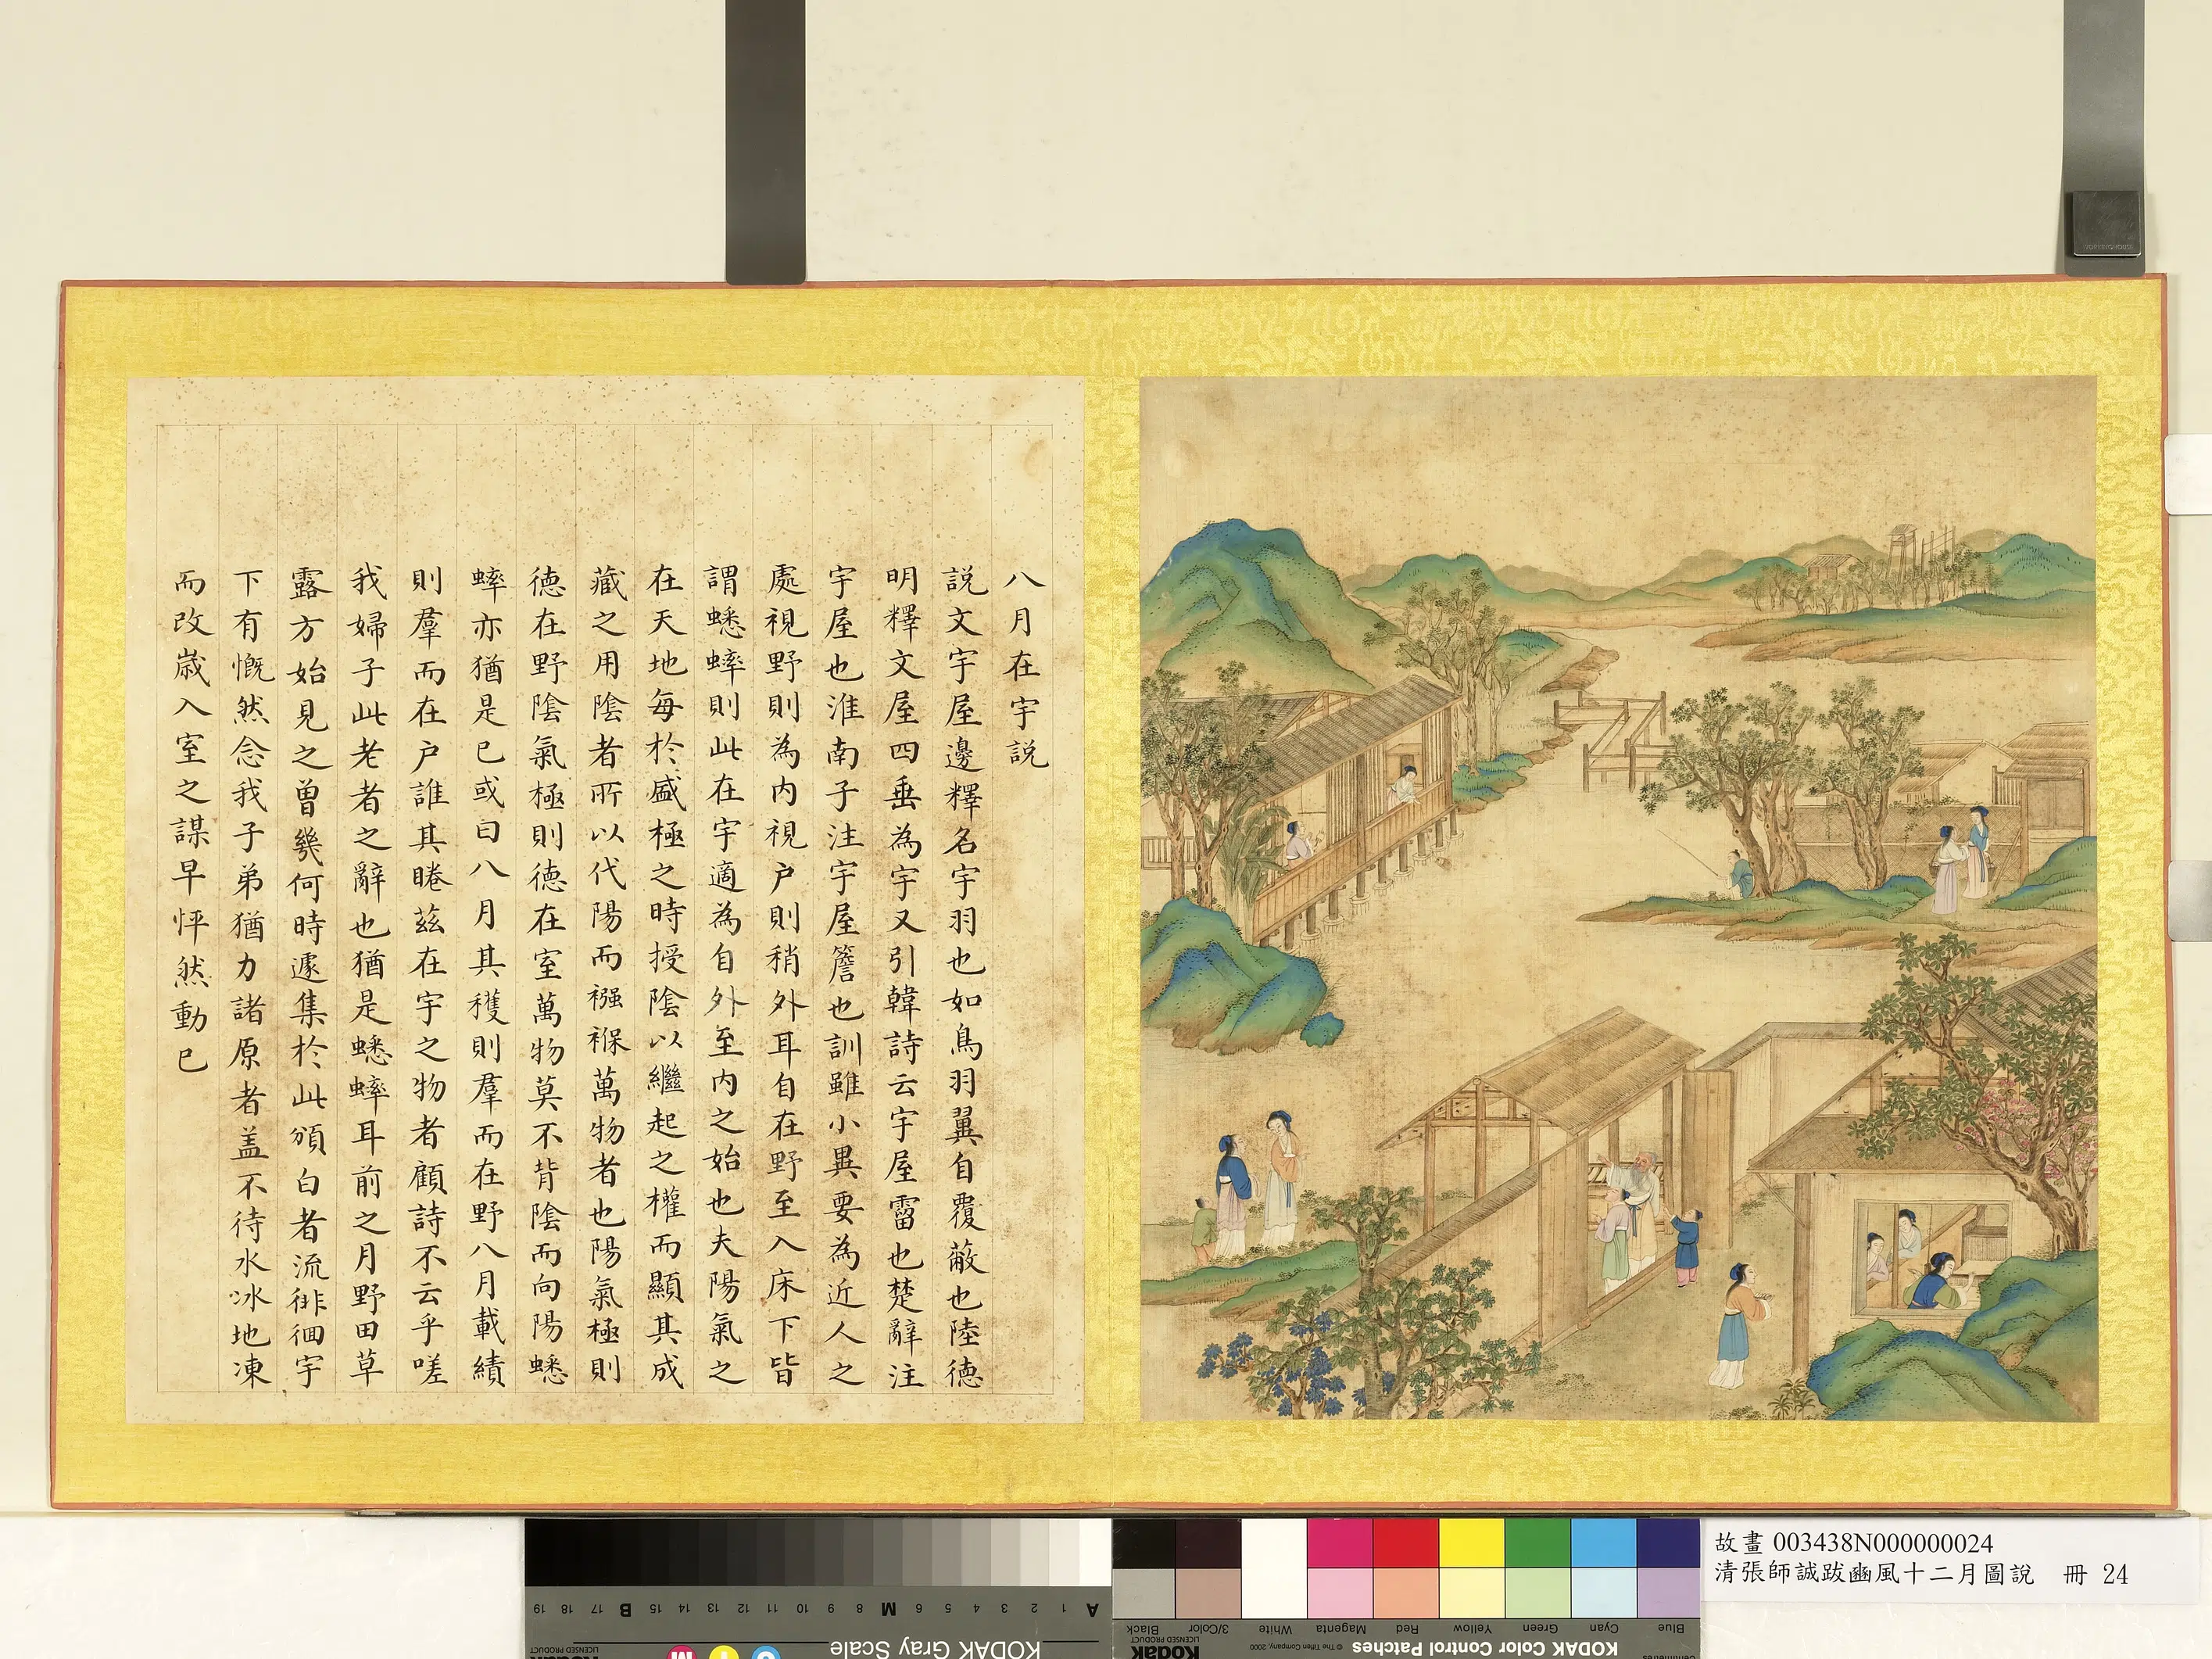 八月在宇説
説文宇屋邊釋名宇羽也如鳥羽翼自覆蔽也陸德
明釋文屋四垂為宇又引韓詩云宇屋霤也楚辭注
宇屋也淮南子注宇屋簷也訓雖小異要為近人之
處視野則為内視户則稍外耳自在野至入床下皆
謂蟋蟀則此在宇適為自外至内之始也夫陽氣之
在天地每於盛極之時授陰以繼起之權而顯其成
藏之用陰者所以代陽而襁褓萬物者也陽氣極則
德在野陰氣極則德在室萬物莫不背陰而向陽蟋
蟀亦猶是已或曰八月其穫則羣而在野八月載績
則羣而在户誰其睠兹在宇之物者顧詩不云乎嗟
我婦子此老者之辭也猶是蟋蟀耳前之月野田草
露方始見之曾幾何時遽集於此頒白者流徘徊宇
下有慨然念我子弟猶力諸原者盖不待水冰地凍
而改歳入室之謀早怦然動已
故畫 003438N000000024
清張師誠跋豳風十二月圖説 冊 24
KODAK Gray Scale
A 1 2 3 4 5 6 M 8 9 10 11 12 13 14 15 B 17 18 19
KODAK Color Control Patches
© The Tiffen Company, 2000
Kodak
LICENSED PRODUCT
Blue Cyan Green Yellow Red Magenta White 3/Color Black